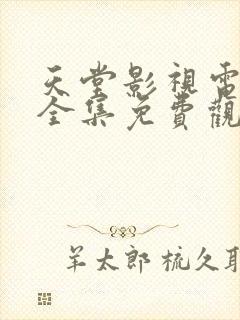 天堂影視電
全集免費觀
羊太郎 梳久耶